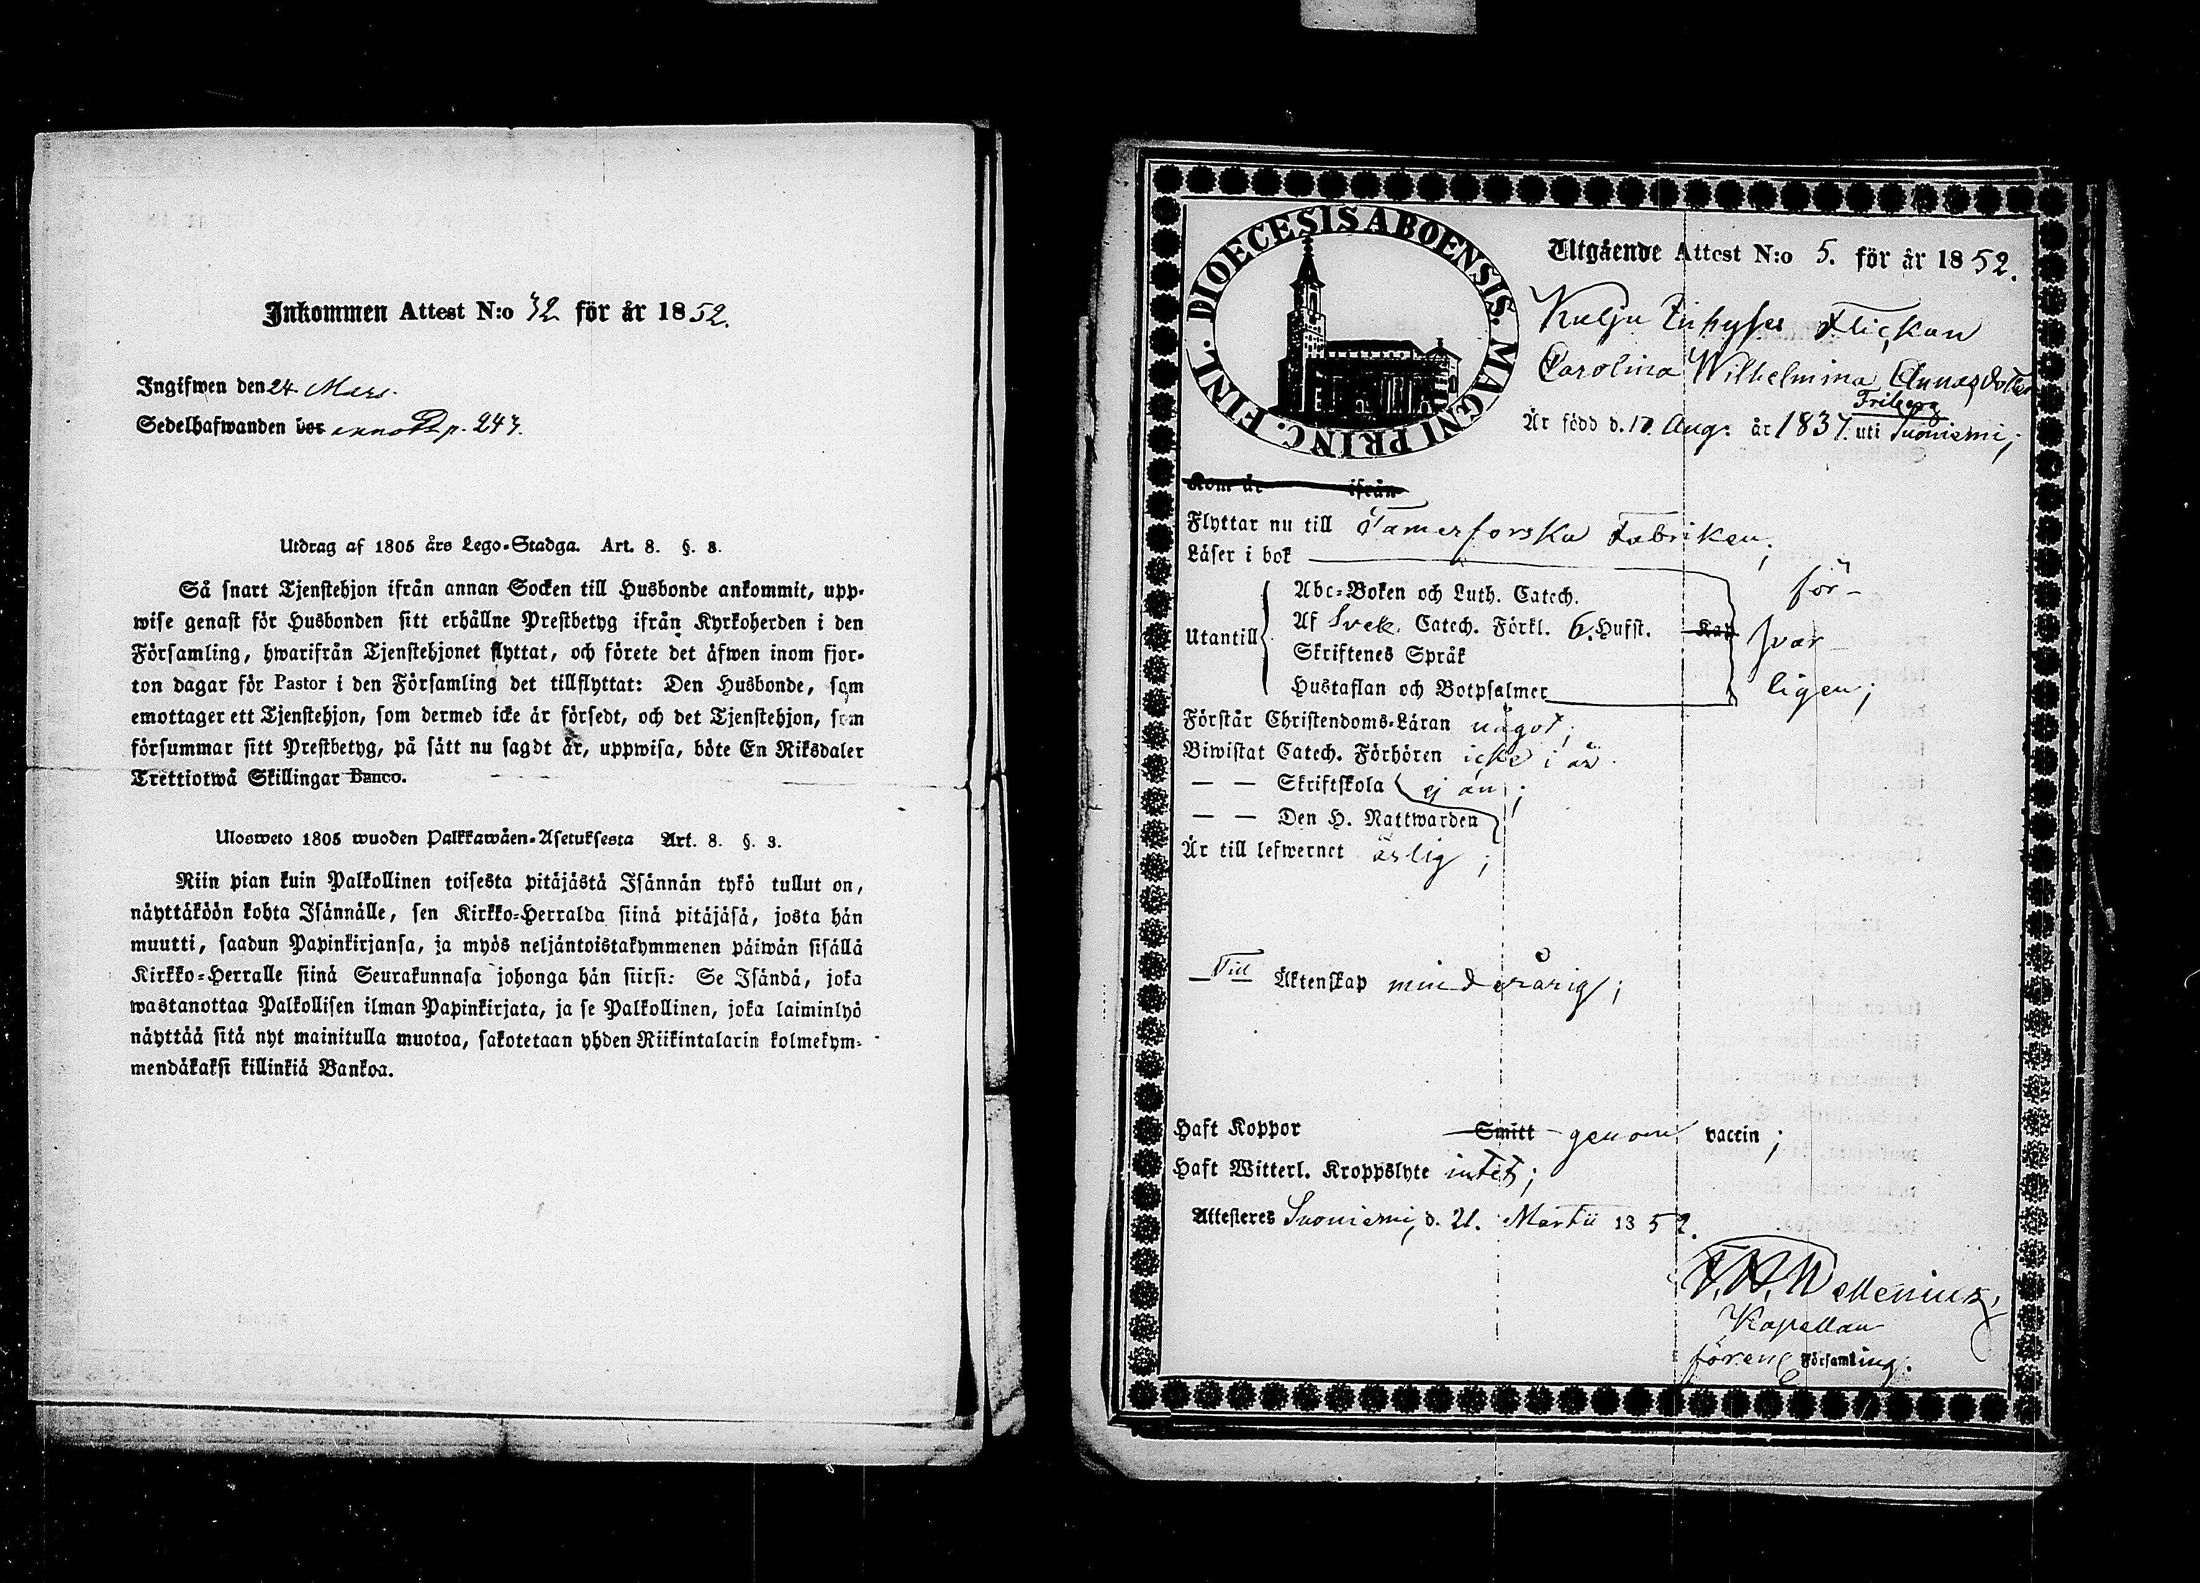 Inkommen Attest N:o 32 för år 1852.
Ingifwen den 24 Mars.
Sedelhafwanden bor anno p. 247.
Utdrag af 1805 års Lego-Stadga. Art. 8. §. 3.
Så snart Tjenstehjon ifrån annan Socken till Husbonde ankommit, upp-
wise genast för Husbonden sitt erhållne Prestbetyg ifrån Kyrkoherden i den
Församling, hwarifrån Tjenstehjonet flyttat, och förete det äfwen inom fjor-
ton dagar för Pastor i den Församling det tillflyttat: Den Husbonde, som
emottager ett Tjenstehjon, som dermed icke är försedt, och det Tjenstehjon, som
försummar sitt Prestbetyg, på sätt nu sagdt är, uppwisa, böte En Riksdaler
Trettiotwå Skillingar Banco.
Ulosweto 1805 wuoden Palkkawäen-Asetuksesta Art. 8. §. 3.
Niin pian kuin Palkollinen toisesta pitäjästä Isännän tykö tullut on,
näyttäköön kohta Isännälle, sen Kirkko-Herralda siinä pitäjäsä, josta hän
muutti, saadun Papinkirjansa, ja myös neljäntoistakymmenen päiwän sisällä
Kirkko-Herralle siinä Seurakunnasa johonga hän siirsi: Se Isändä, joka
wastanottaa Palkollisen ilman Papinkirjata, ja se Palkollinen, joka laiminlyö
näyttää sitä nyt mainitulla muotoa, sakotetaan yhden Riikintalarin kolmekym-
mendäkaksi killinkiä Bankoa.
DIOECESIS ABOENSIS. MAGNI PRINC. FINL.
Utgående Attest N:o 5. för år 1852.
Kulju Flickan
Carolina Wilhelmina Annasdotter
Friberg
Är född d. 17 Aug. år 1837. uti Suoniemi;
Kom år ifrån
Flyttar nu till Tamerforska Fabriken;
Läser i bok
Utantill
Abc-Boken och Luth. Catech.
Af Sveb. Catech. Förkl. 6. Hufst. Kap
Skriftenes Språk
Hustaflan och Botpsalmer
för-
svar-
ligen;
Förstår Christendoms-Läran något;
Biwistat Catech. Förhören icke i år.
— — Skriftskola ej än;
— — Den H. Nattwarden
Är till lefwernet ärlig;
Till Äktenskap minderårig;
Haft Koppor Smitt genom vaccin;
Haft Witterl. Kroppslyte intet;
Attesteres Suoniemi, d. 21. Martii 1852.
Wellenius,
Kapellan
Församling.